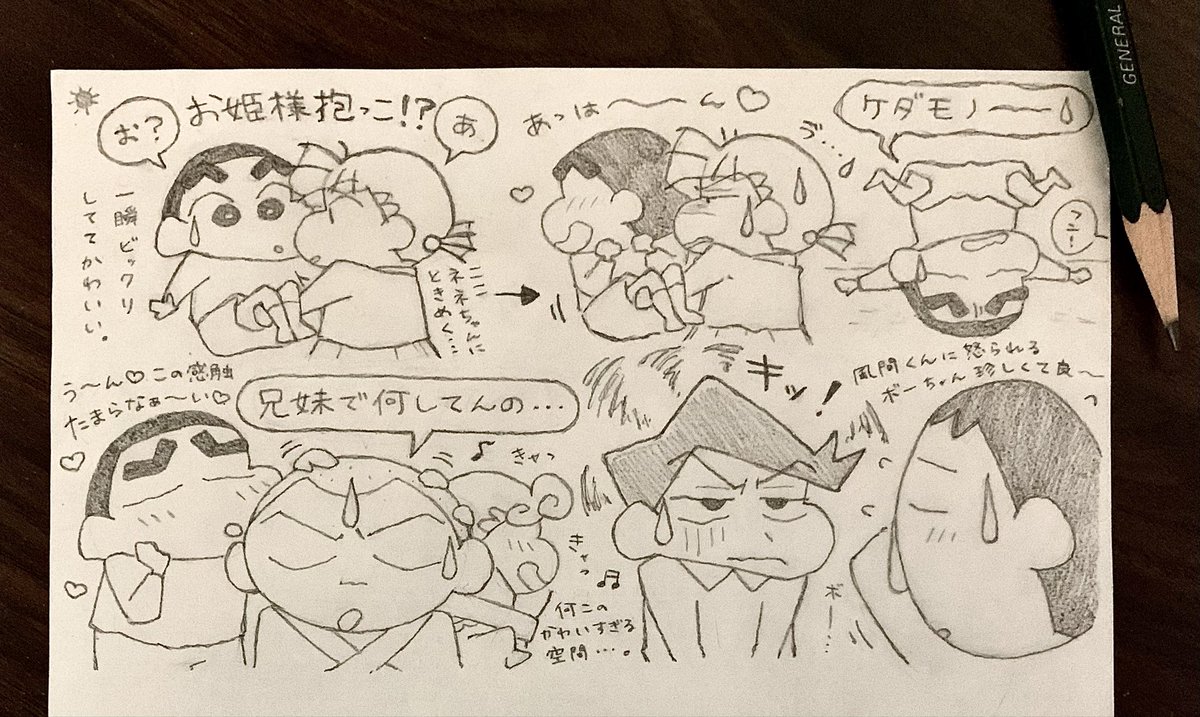 お姫様抱っこ!?
お?
あ
一瞬ビックリ
しててかわいい。
ここ
ネネちゃんに
ときめく…
あっは〜〜ん♡
ゔ…
ケダモノ——
フニ!
う〜ん♡この感触
たまらなぁ〜い♡
兄妹で何してんの…
きゃっ
きゃっ
何この
かわいすぎる
空間…。
キッ!
風間くんに怒られる
ボーちゃん珍しくて良〜
ボー…
GENERAL